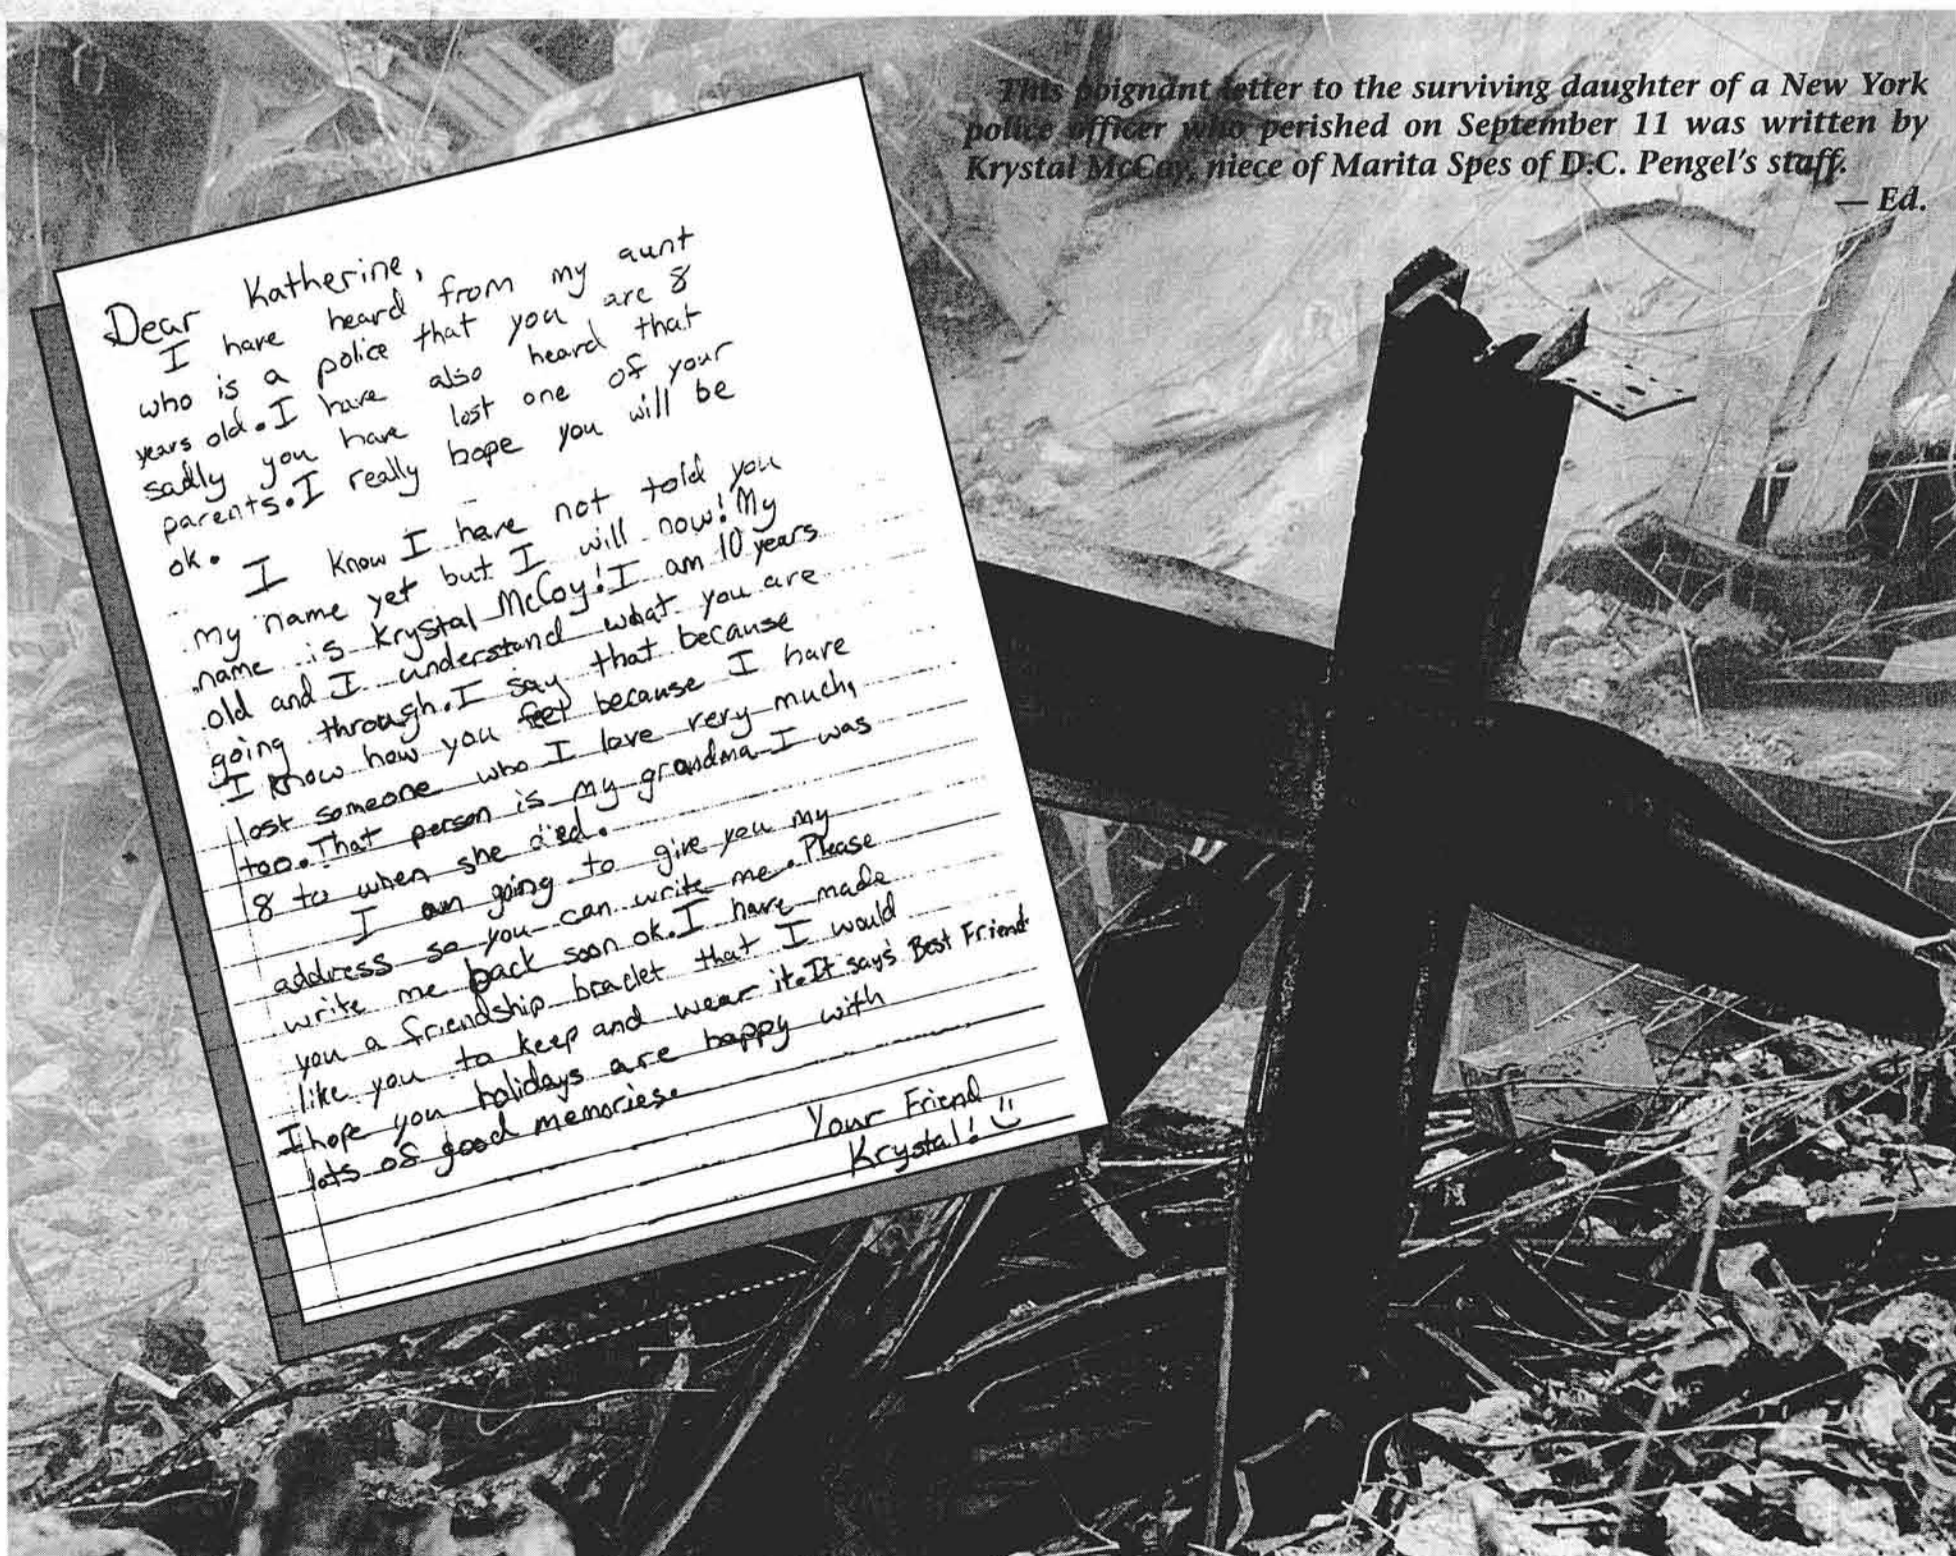 This poignant letter to the surviving daughter of a New York
police officer who perished on September 11 was written by
Krystal McCoy, niece of Marita Spes of D.C. Pengel's staff.
— Ed.
Dear Katherine,
I have heard from my aunt
who is a police that you are 8
years old. I have also heard that
sadly you have lost one of your
parents. I really hope you will be
ok.
I know I have not told you
my name yet but I will now! My
name is Krystal McCoy! I am 10 years
old and I understand what you are
going through. I say that because
I know how you feel because I have
lost someone who I love very much,
too. That person is my grandma I was
8 to when she died.
I am going to give you my
address so you can write me. Please
write me back soon ok. I have made
you a friendship braclet that I would
like you to keep and wear it. It say's Best Friend
I hope you holidays are happy with
lots of good memories.
Your Friend
Krystal!